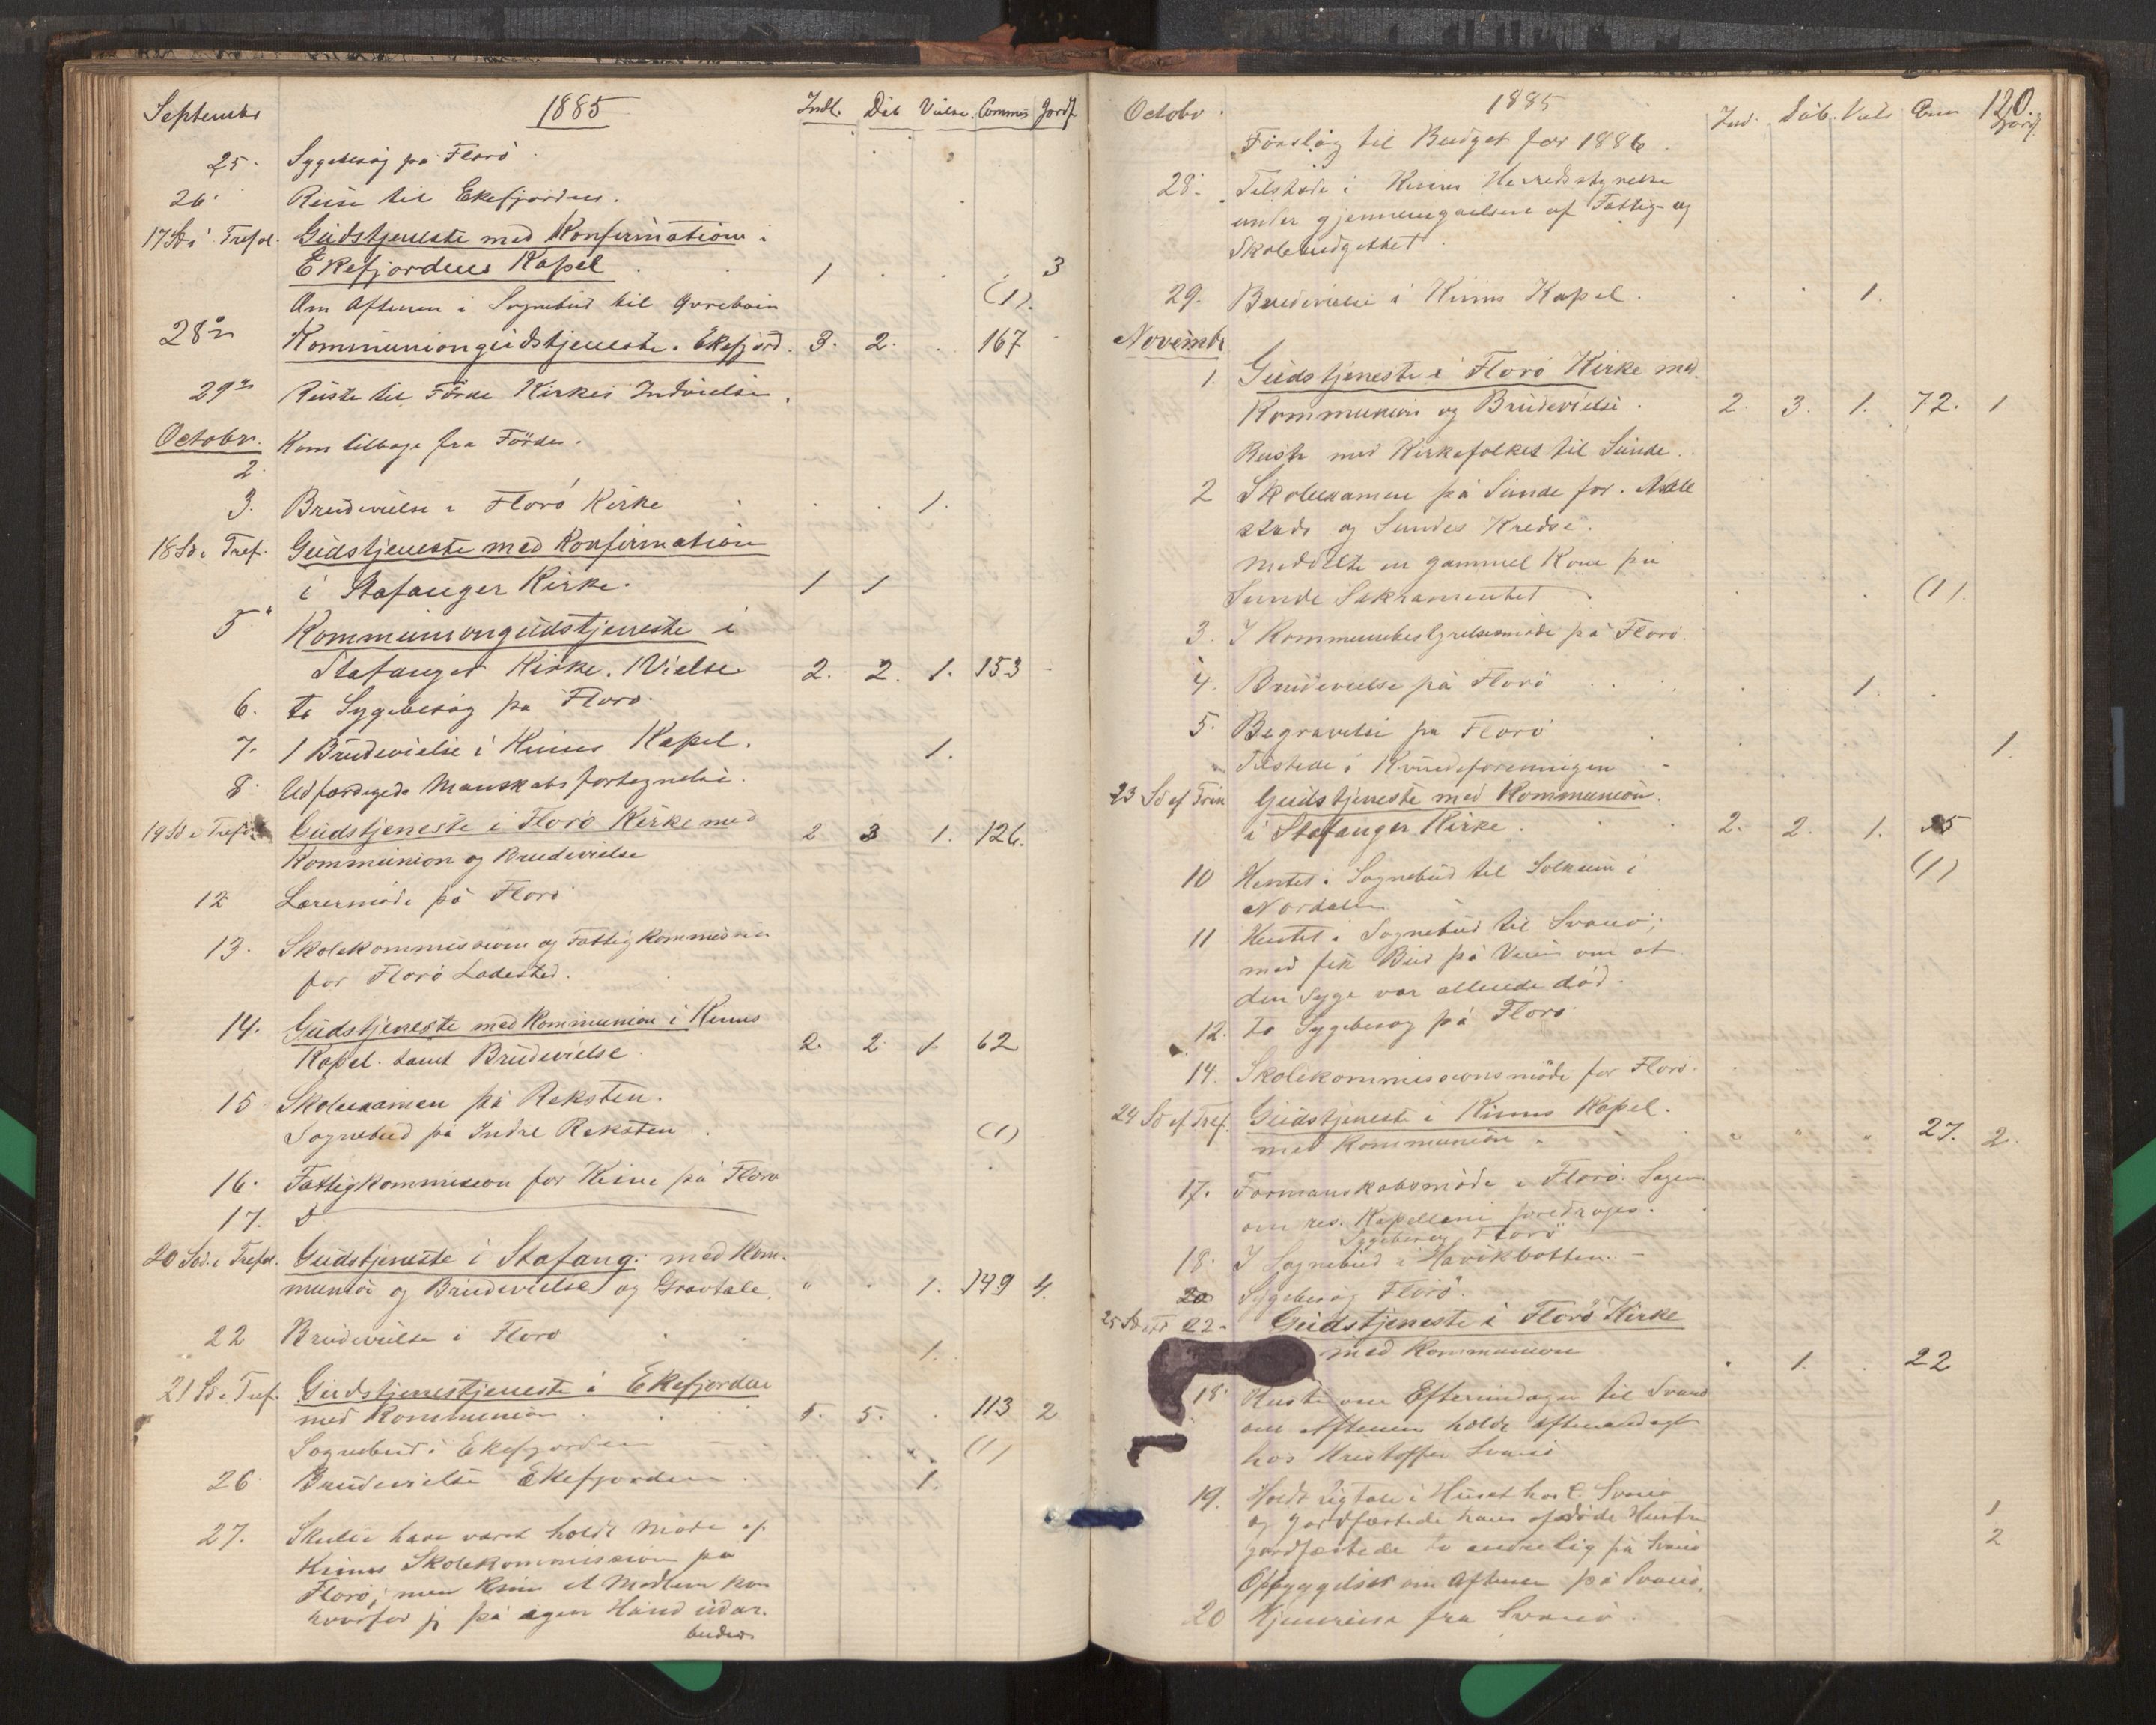 September 1885 Indl. Dåb Vielse. Commu Jordf.
25. Sygebesøg på Florö
26. Reise til Ekefjorden.
17 Sd. i Trefol. Gudstjeneste med Konfirmation i
Ekefjordens Kapel 1 3
Om Aftenen i Sognebud til (1).
28de Kommuniongudstjeneste. Ekefjord. 3. 2. 167
29de Reiste til Förde Kirkes Indvielse.
Octobr. Kom tilbage fra Förde.
2
3. Brudevielse i Florö Kirke 1.
18 Sd. i Tref. Gudstjeneste med Konfirmation
i Stafanger Kirke. 1 1
5 Kommuniongudstjeneste i
Stafanger Kirke. 1 Vielse 2. 2. 1. 153
6. to Sygebesøg på Florö.
7. 1 Brudevielse i Kinns Kapel. 1.
8. Udfærdigede Manskabsfortegnelse.
19 Sd. i Tref. Gudstjeneste i Florö Kirke med 2 3 1. 126.
Kommunion og Brudevielse
12 Lærermöde på Florö
13. Skolekommission og Fattigkommission
for Florö Ladested.
14. Gudstjeneste med Kommunion i Kinns
Kapel. samt Brudevielse. 2. 2 1. 62
15 Skoleexamen på Reksten.
Sognebud på Indre Reksten (1)
16. Fattigkommission for Kinn på Florö
17. d
20 Sd. i Trefol. Gudstjeneste i Stafang. med Kom-
munion og Brudevielse og Gravtale. " 1. 149 4.
22 Brudevielse i Florö 1.
21 Sd. i Tref. Gudstjenestjeneste i Ekefjorden
med Kommunion 5. 5. 113 2
Sognebud i Ekefjorden (1)
26. Brudevielse Ekefjorden. 1.
27. Skulde have været holdt Möde af
Kinns Skolekommission på
Florö; men kom
hvorfor jeg på egen Hånd udar-
beider
Octobr. 1885 Ind. Dåb. Viels Com 120. Jord
Forslag til Budget for 1886.
28. Tilstede i Kinns Herredsstyrelse
under gjennemgåelsen af Fattig- og
Skolebudgettet.
29. Brudevielse i Kinns Kapel. 1.
Novembr.
1. Gudstjeneste i Florö Kirke med
Kommunion og Brudevielse. 2. 3. 1. 72. 1
Reiste med Kirkefolket til Sunde.
2 Skoleexamen på Sunde for
stads og Sundes Kredse.
meddelte en gammel Kone på
Sunde Sakramentet (1).
3. I Kommunebestyrelsesmöde på Florö.
4. Brudevielse på Florö 1.
5. Begravelse på Florö 1.
" Tilstede i Kvindeforeningen
23 Sd ef Trin Gudstjeneste med Kommunion.
i Stafanger Kirke. 2. 2. 1. 35
10 Hentet i Sognebud til Solheim i (1)
Nordalen
11 Hentet i Sognebud til Svanö;
med fik Bud på Veien om at
den Syge var allerede död.
12. to Sygebesøg på Florö
14. Skolekommissionsmöde for Florö.
24 Sd ef Tref. Gudstjeneste i Kinns Kapel.
med Kommunion " " " 27. 2.
17. Formanskabsmöde i Florö. Sagen
om res. Kapellani foredrages.
Sygebesøg Florö
18. I Sognebud i Havikbotten.
20 Sygebesøg Florö.
25 Sd 22. Gudstjeneste i Florö Kirke
med Kommunion 1. 22
18 Reiste om Eftermiddagen til Svanö
om Aftenen holdt Aftenandagt
hos Kristoffer Svanö
19. Holdt Ligtale i Huset hos C. Svanö 1
og jordfæstede hans afdöde Hustru
jordfæstede to andre Lig på Svanö 2
Opbyggelse om Aftenen på Svanö.
20 Hjemreise fra Svanö.